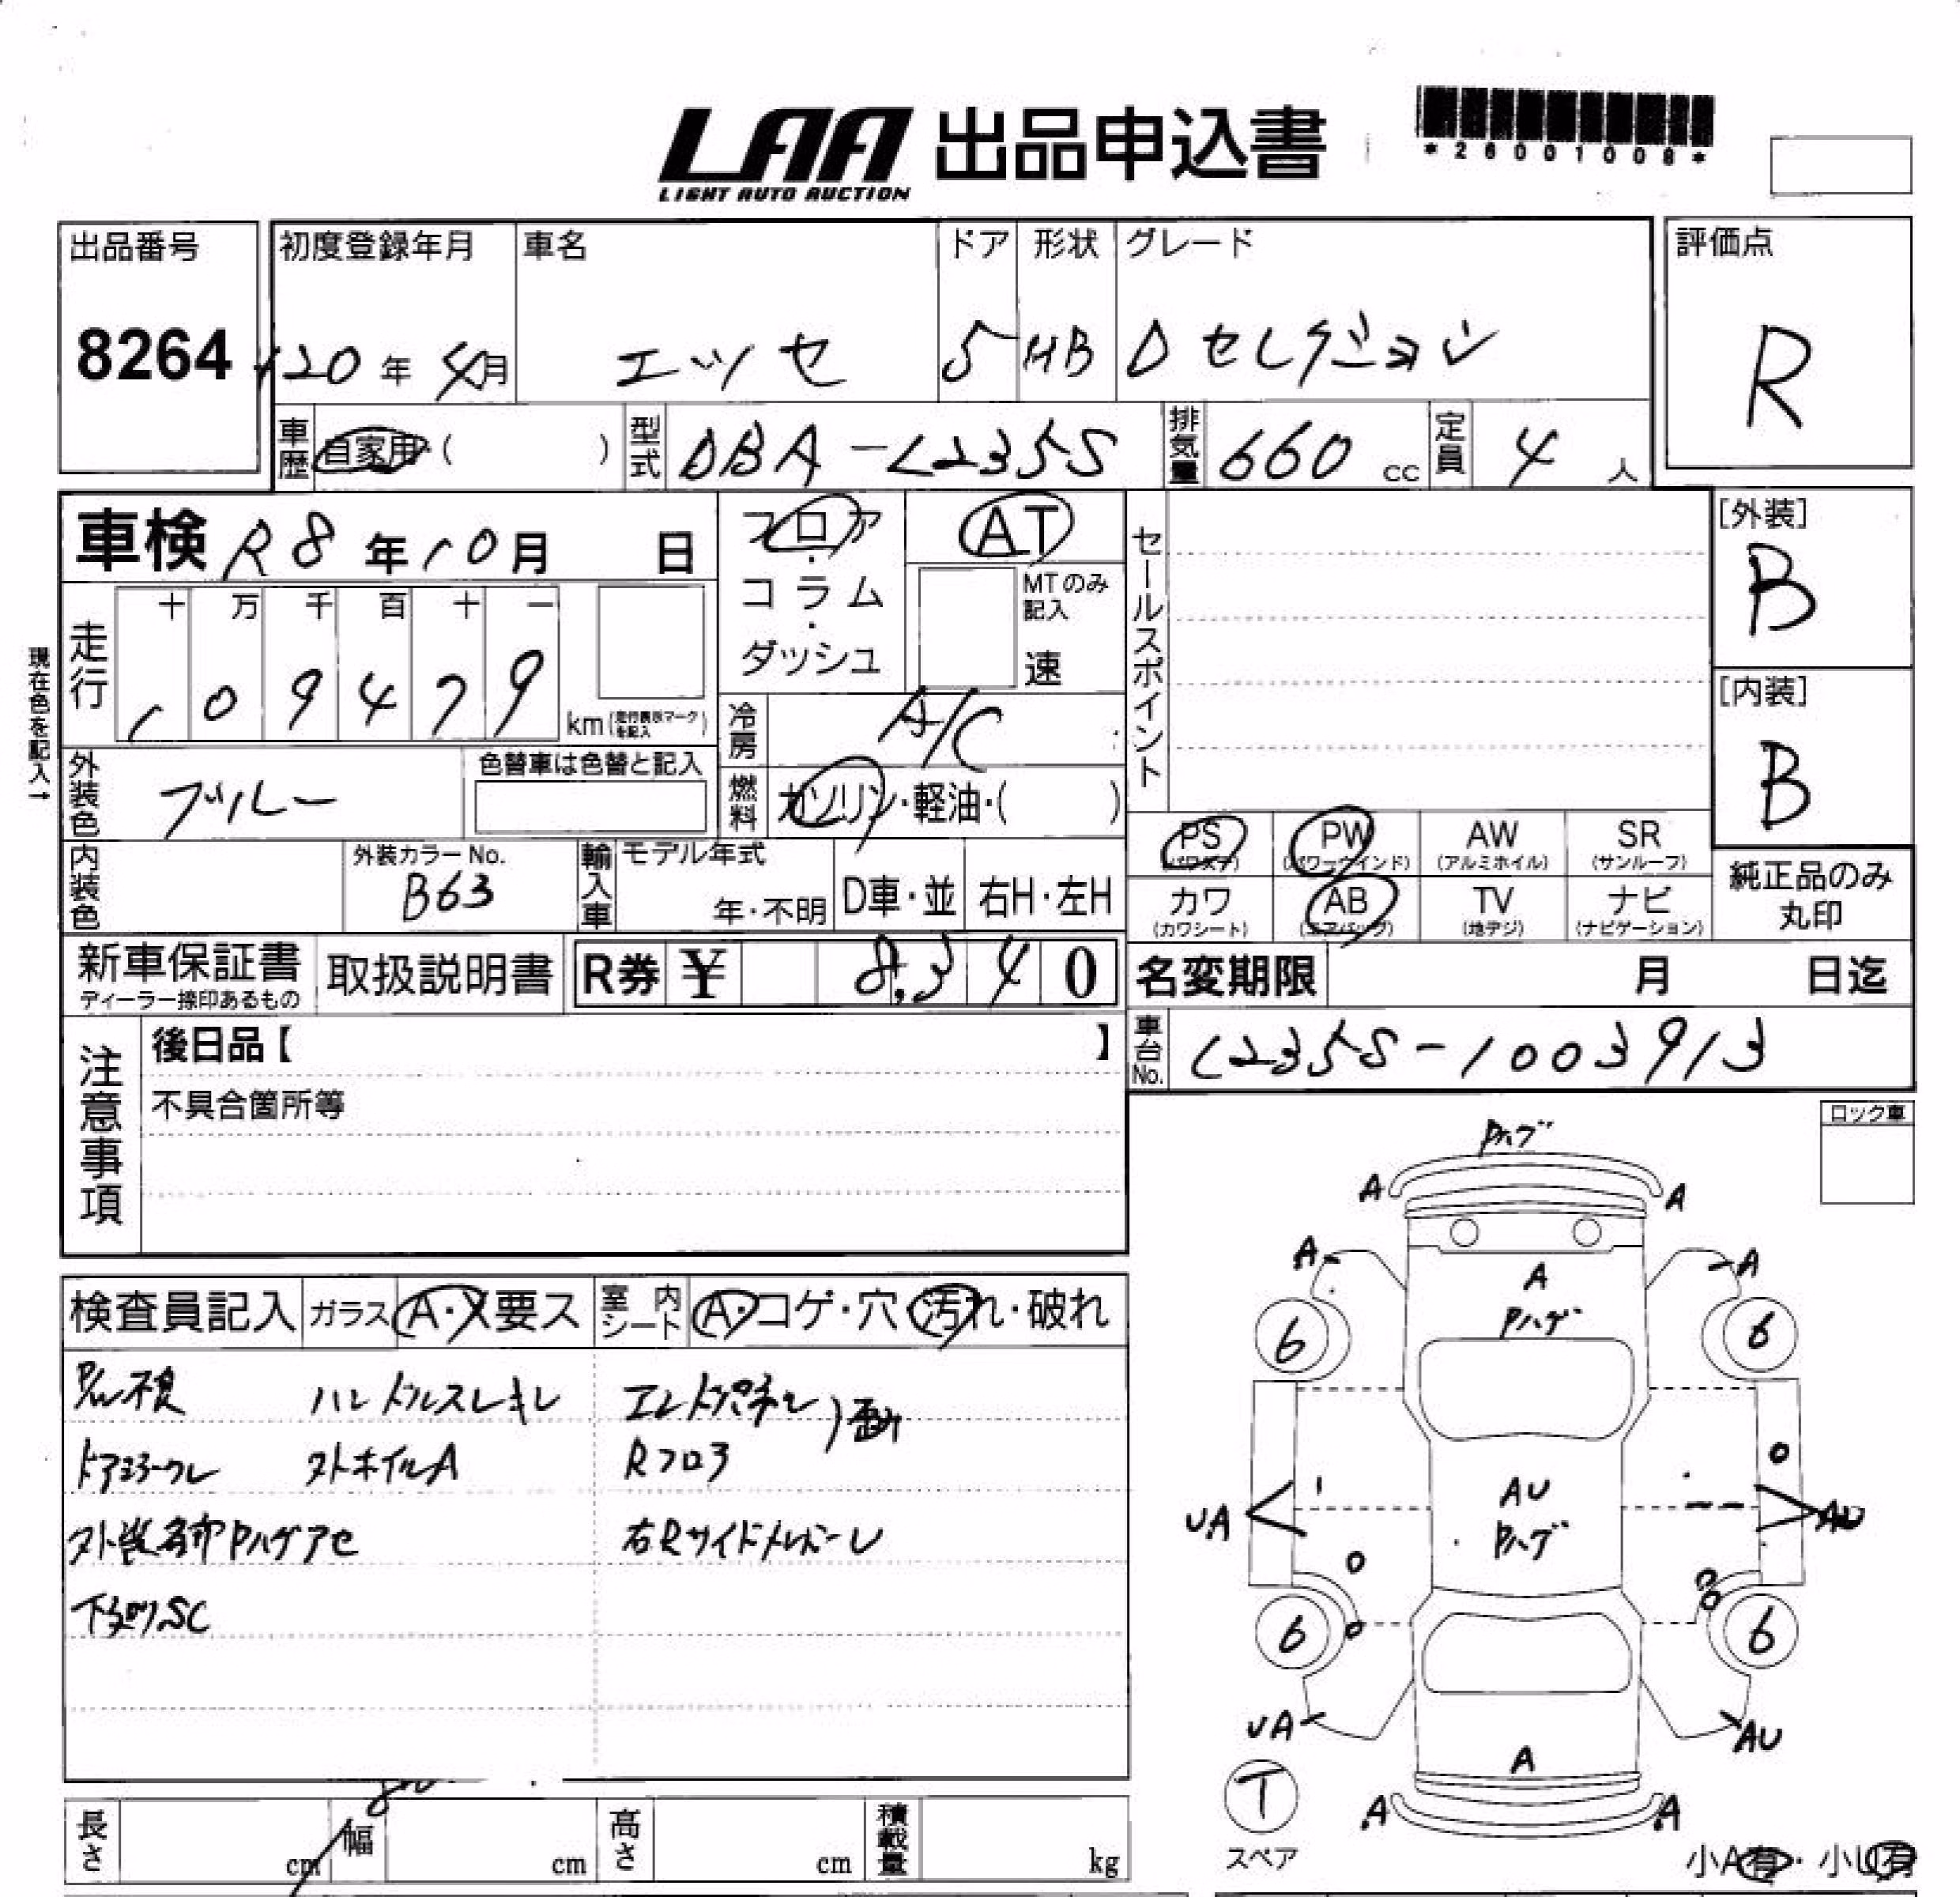 LAA 出品申込書
LIGHT AUTO AUCTION
*26001008*
出品番号 初度登録年月 車名 ドア 形状 グレード 評価点
8264 H20年 4月 エッセ 5 HB Dセレクション R
車歴 自家用・( ) 型式 DBA-L235S 排気量 660 cc 定員 4 人
車検 R8年10月 日 フロア・コラム・ダッシュ AT
MTのみ記入 速
セールスポイント
[外装] B
走行 十 万 千 百 十 一
1 0 9 4 7 9 km(走行表示マークを記入)
現在色を記入→
冷房 A/C
[内装] B
外装色 ブルー 色替車は色替と記入
燃料 ガソリン・軽油・( )
内装色 外装カラーNo. B63 輸入車 モデル年式 年・不明 D車・並 右H・左H
PS (パワステ) PW (パワーウインド) AW (アルミホイル) SR (サンルーフ)
カワ (カワシート) AB (エアバッグ) TV (地デジ) ナビ (ナビゲーション)
純正品のみ丸印
新車保証書 ディーラー捺印あるもの 取扱説明書 R券 ¥ 8,340
名変期限 月 日迄
車台No. L235S-1003913
注意事項 後日品【 】
不具合箇所等
ロック車
検査員記入 ガラス A・X要ス 室内シート A・コゲ・穴・汚れ・破れ
ハンドルスレキレ エンドパネル
ドアミラーワレ タトホイルA Rフロア
外装各部Pハゲアセ 右Rサイドメンバーレ
下廻りSC
Pハゲ
A A
A A
A
Pハゲ
6 6
AU
Pハゲ
UA AU
6 6
UA AU
A
A A
T
スペア
小A有・小U有
長さ cm 幅 cm 高さ cm 積載量 kg